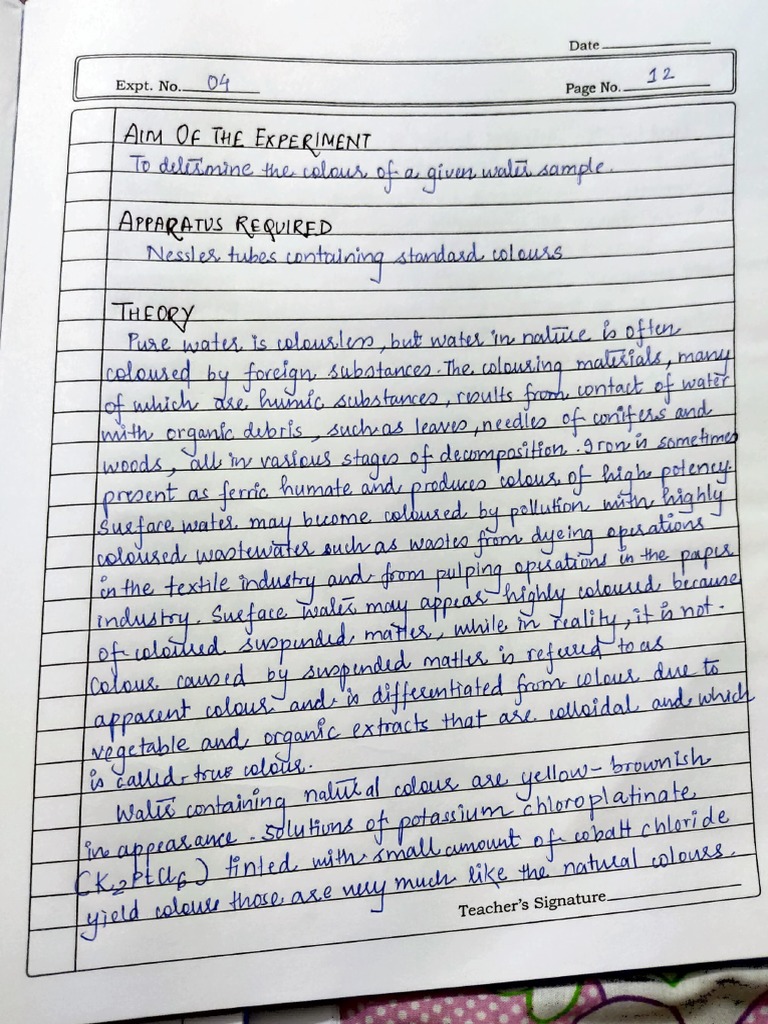 Date
Expt. No. 04
Page No. 12
AIM OF THE EXPERIMENT
To determine the colour of a given water sample.
APPARATUS REQUIRED
Nessler tubes containing standard colours
THEORY
Pure water is colourless, but water in nature is often
coloured by foreign substances. The colouring materials, many
of which are humic substances, results from contact of water
with organic debris, such as leaves, needles of conifers and
woods, all in various stages of decomposition. Iron is sometimes
present as ferric humate and produces colour of high potency.
Surface water may become coloured by pollution with highly
coloured wastewater such as wastes from dyeing operations
in the textile industry and from pulping operations in the paper
industry. Surface water may appear highly coloured because
of coloured suspended matter, while in reality, it is not.
Colour caused by suspended matter is refered to as
apparent colour and is differentiated from colour due to
vegetable and organic extracts that are colloidal and which
is called true colour.
Water containing natural colour are yellow-brownish
in appearance. Solutions of potassium chloroplatinate
(K2PtCl6) tinted with small amount of cobalt chloride
yield colours those are very much like the natural colours.
Teacher's Signature